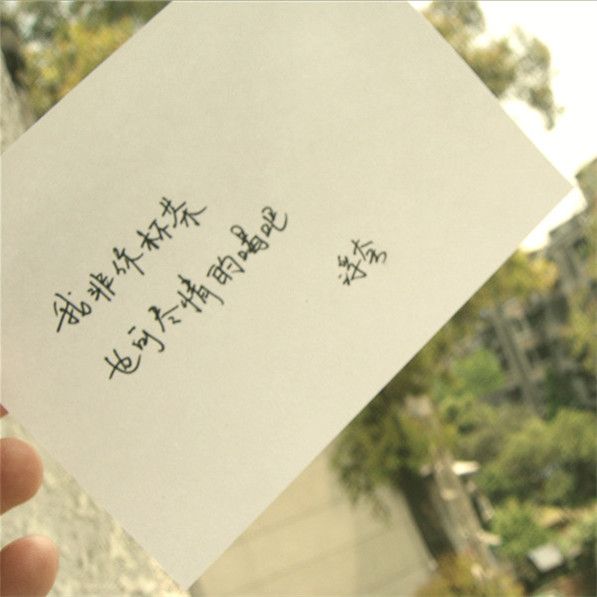 我非你杯茶
也可尽情的喝吧